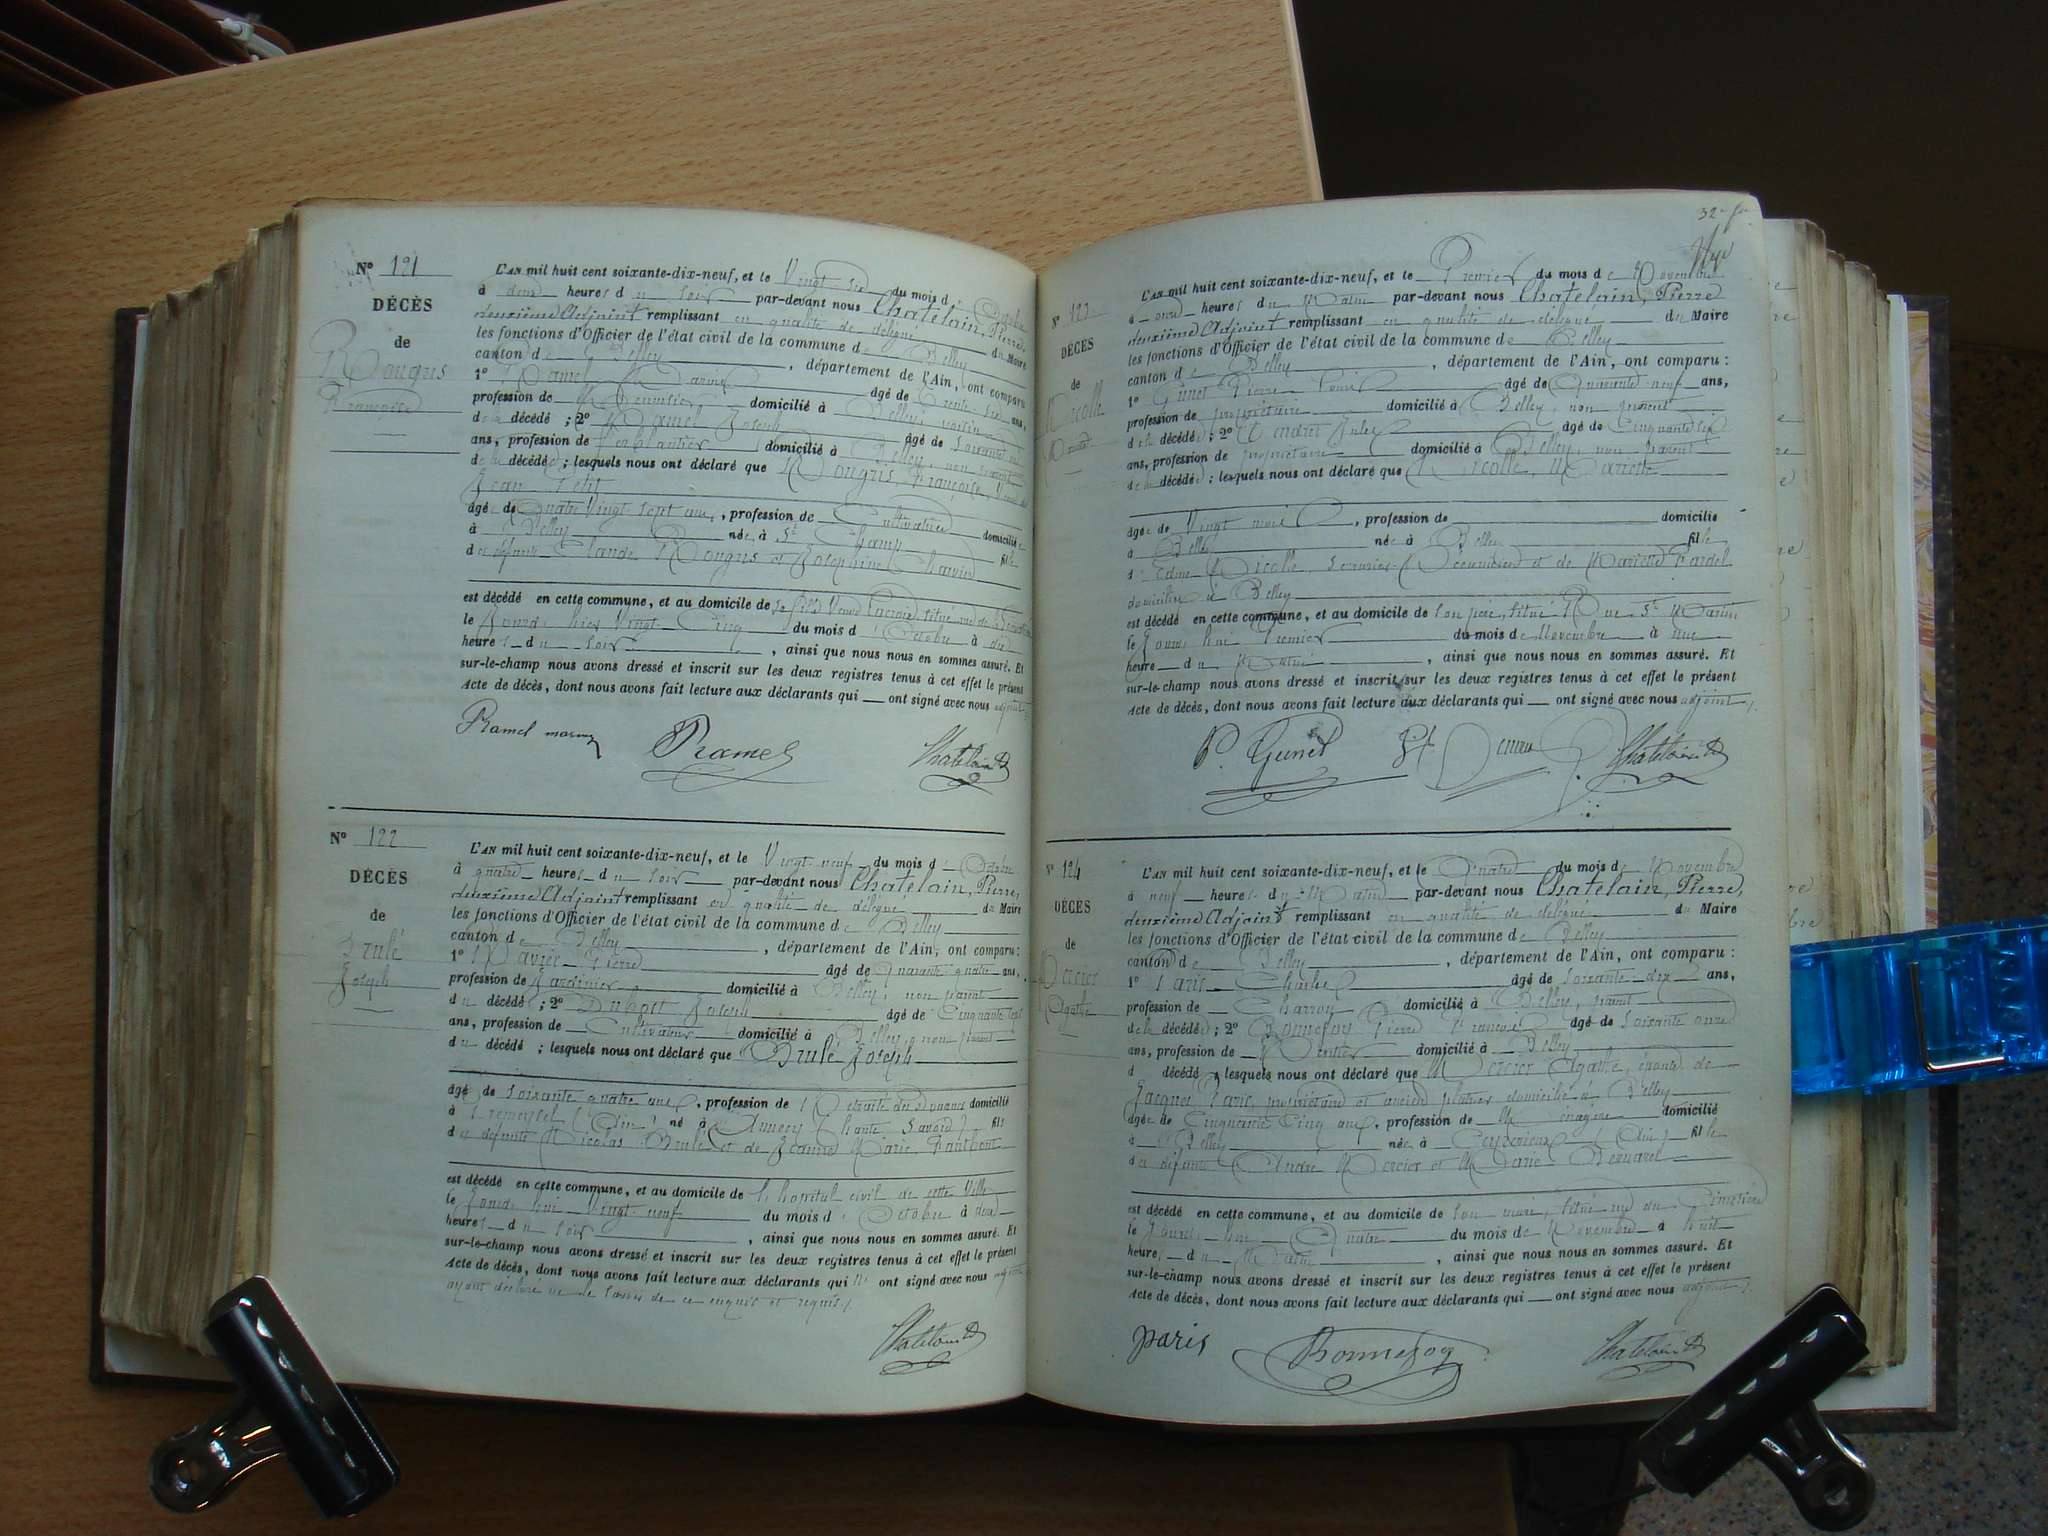 N° 121
DÉCÈS
de
Rougus
Françoise
L'AN mil huit cent soixante-dix-neuf, et le Vingt six du mois d'Octobre
à deux heures du Soir par-devant nous Chatelain, Pierre,
deuxième Adjoint remplissant en qualité de délégué du Maire
les fonctions d'Officier de l'état civil de la commune de Belley
canton de Belley, département de l'Ain, ont comparu
1° Ramel Marin âgé de Trente six ans,
profession de Menuisier domicilié à Belley, voisin
de la décédé ; 2° Ramel Joseph âgé de Soixante
ans, profession de Ferblantier domicilié à Belley, non parent
de la décédé ; lesquels nous ont déclaré que Rougus, Françoise, Veuve de
Jean Petit
âgée de Quatre Vingt Sept ans, profession de Cultivatrice domicilié
à Belley née à St Champ fille
du défunt Claude Rougus et Josephine
est décédé en cette commune, et au domicile de sa fille Veuve Lacroix, situé rue de
le Jour hier Vingt Cinq du mois d'Octobre à dix
heures du soir, ainsi que nous nous en sommes assuré. Et
sur-le-champ nous avons dressé et inscrit sur les deux registres tenus à cet effet le présent
Acte de décès, dont nous avons fait lecture aux déclarants qui ont signé avec nous adjoint
Ramel marin Ramel Chatelain
N° 122
DÉCÈS
de
Brulé
Joseph
L'AN mil huit cent soixante-dix-neuf, et le Vingt-neuf du mois d'Octobre
à quatre heures du Soir par-devant nous Chatelain, Pierre,
deuxième Adjoint remplissant en qualité de délégué du Maire
les fonctions d'Officier de l'état civil de la commune de Belley
canton de Belley, département de l'Ain, ont comparu :
1° Pierre âgé de Quarante quatre ans,
profession de Jardinier domicilié à Belley, non parent
du décédé ; 2° Dubost Joseph âgé de Cinquante sept
ans, profession de Cultivateur domicilié à Belley, non parent
du décédé ; lesquels nous ont déclaré que Brulé Joseph
âgé de Soixante quatre ans, profession de Retraité des Douanes domicilié
à (Ain) né à Annecy (haute Savoie) fils
du défunts Nicolas Brulé et de Jeanne Marie
est décédé en cette commune, et au domicile de l'hopital civil de cette Ville
le Jourd'hui Vingt-neuf du mois d'Octobre à deux
heures du soir, ainsi que nous nous en sommes assuré. Et
sur-le-champ nous avons dressé et inscrit sur les deux registres tenus à cet effet le présent
Acte de décès, dont nous avons fait lecture aux déclarants qui n'ont signé avec nous adjoint
ayant déclaré ne le savoir de ce enquis et requis
Chatelain
32
N° 123
DÉCÈS
de
Nicolle
L'AN mil huit cent soixante-dix-neuf, et le Premier du mois de Novembre
à onze heures du Matin par-devant nous Chatelain, Pierre
deuxième Adjoint remplissant en qualité de délégué du Maire
les fonctions d'Officier de l'état civil de la commune de Belley
canton de Belley, département de l'Ain, ont comparu :
1° Gunet Pierre Louis âgé de Quarante neuf ans,
profession de propriétaire domicilié à Belley, non parent
de la décédé ; 2° Jules âgé de Cinquante six
ans, profession de propriétaire domicilié à Belley, non parent
de la décédé : lesquels nous ont déclaré que Nicolle, Mariette
âgée de Vingt mois, profession de domicilié
à Belley née à Belley fille
d' Edme Nicolle, Serrurier et de Mariette
domiciliés à Belley
est décédé en cette commune, et au domicile de son père, situé Rue St Martin
le Jourd'hui Premier du mois de Novembre à une
heure du Matin, ainsi que nous nous en sommes assuré. Et
sur-le-champ nous avons dressé et inscrit sur les deux registres tenus à cet effet le présent
Acte de décès, dont nous avons fait lecture aux déclarants qui ont signé avec nous adjoint
P. Gunet Chatelain
N° 124
DÉCÈS
de
Mercier
Agathe
L'AN mil huit cent soixante-dix-neuf, et le Quatre du mois de Novembre
à neuf heures du Matin par-devant nous Chatelain, Pierre,
deuxième Adjoint remplissant en qualité de délégué du Maire
les fonctions d'Officier de l'état civil de la commune de Belley
canton de Belley, département de l'Ain, ont comparu :
1° Paris Charles âgé de Soixante dix ans,
profession de Charron domicilié à Belley, parent
de la décédé ; 2° Bonnefoy Pierre François âgé de Soixante onze
ans, profession de Rentier domicilié à Belley
d décédé ; lesquels nous ont déclaré que Mercier Agathe, épouse de
Jacques Paris, propriétaire et ancien plâtrier domicilié à Belley
âgée de Cinquante Cinq ans, profession de Ménagère domicilié
à Belley née à Ceyzérieux (Ain) fille
du défunts André Mercier et Marie Bernard
est décédé en cette commune, et au domicile de son mari, situé rue du
le Jourd'hui Quatre du mois de Novembre à huit
heures du Matin, ainsi que nous nous en sommes assuré. Et
sur-le-champ nous avons dressé et inscrit sur les deux registres tenus à cet effet le présent
Acte de décès, dont nous avons fait lecture aux déclarants qui ont signé avec nous adjoint
paris Bonnefoy Chatelain